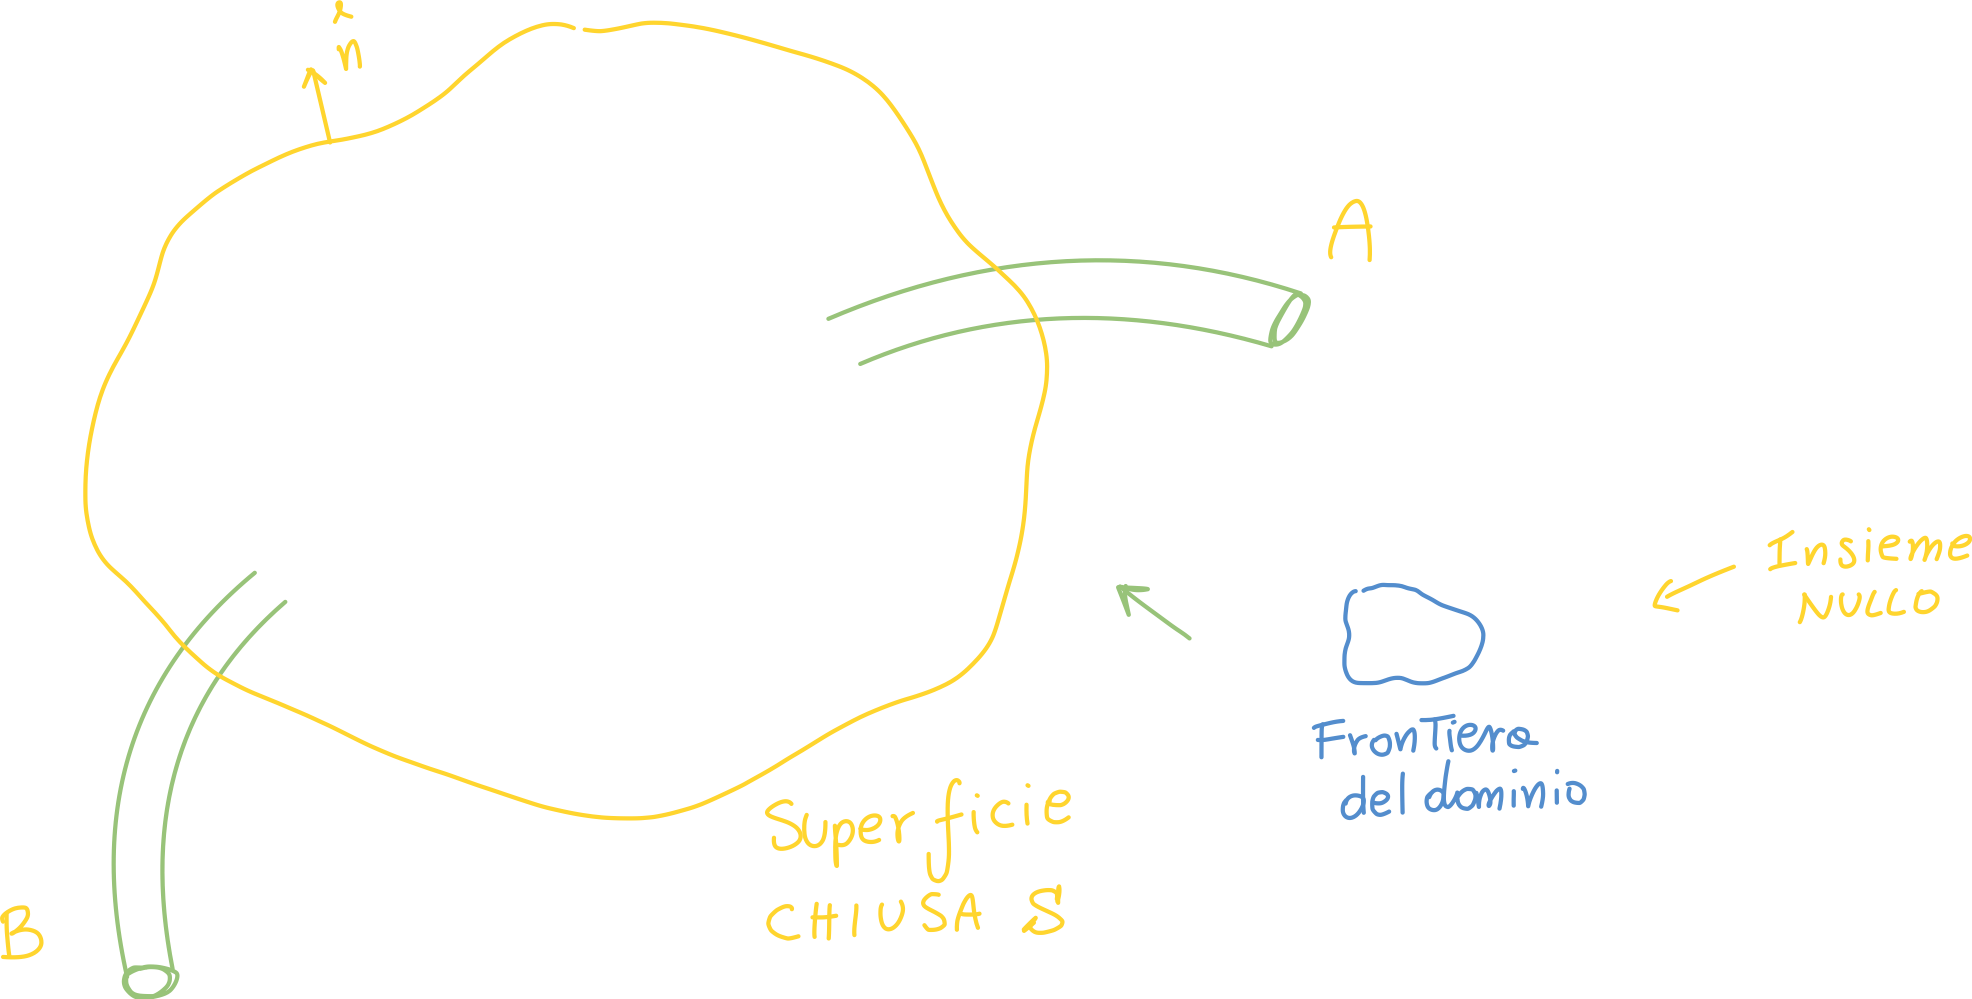 n
A
Insieme
NULLO
Frontiera
del dominio
Superficie
CHIUSA S
B